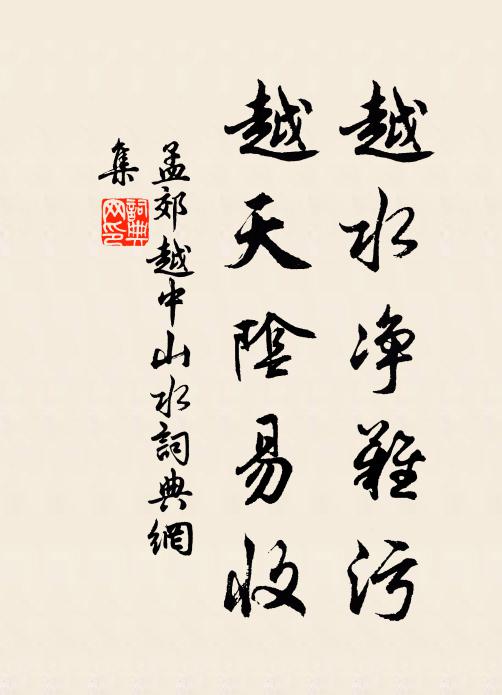 越水净難污
越天陰易收
孟郊越中山水詞典網
集
詞典
网印